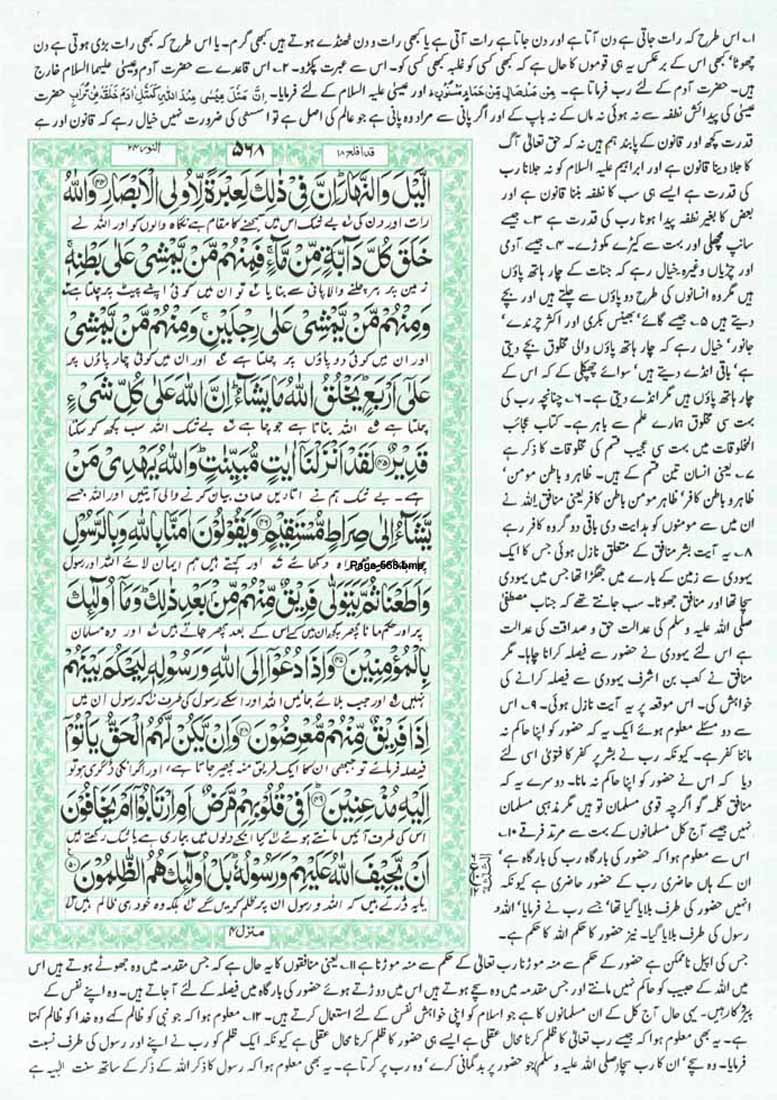 ۱۔ اس طرح کہ رات جاتی ہے دن آتا ہے اور دن جاتا ہے رات آتی ہے یا کبھی رات و دن ٹھنڈے ہوتے ہیں کبھی گرم۔ یا اس طرح کہ کبھی رات بڑی ہوتی ہے دن
چھوٹا' کبھی اس کے برعکس یہ ہی قوموں کا حال ہے کہ کبھی کسی کو غلبہ کبھی کسی کو۔ اس سے عبرت پکڑو۔ ۲۔ اس قاعدے سے حضرت آدم و عیسیٰ علیہما السلام خارج
ہیں۔ حضرت آدم کے لئے رب فرماتا ہے۔ مِنْ صَلْصَالٍ مِّنْ حَمَاٍ مَّسْنُوْنٍ اور عیسیٰ علیہ السلام کے لئے فرمایا۔ اِنَّ مَثَلَ عِیْسٰی عِنْدَ اللّٰہِ کَمَثَلِ اٰدَمَ خَلَقَہٗ مِنْ تُرَابٍ حضرت
عیسیٰ کی پیدائش نطفہ سے نہ ہوئی نہ ماں کے نہ باپ کے اور اگر پانی سے مراد وہ پانی ہے جو عالم کی اصل ہے تو استثنیٰ کی ضرورت نہیں خیال رہے کہ قانون اور ہے
قدرت کچھ اور قانون کے پابند ہم ہیں نہ کہ حق تعالیٰ آگ
کا جلا دینا قانون ہے اور ابراہیم علیہ السلام کو نہ جلانا رب
کی قدرت ہے ایسے ہی سب کا نطفہ بننا قانون ہے اور
بعض کا بغیر نطفہ پیدا ہونا رب کی قدرت ہے ۳۔ جیسے
سانپ مچھلی اور بہت سے کیڑے مکوڑے۔ ۴۔ جیسے آدمی
اور چڑیاں وغیرہ خیال رہے کہ جنات کے چار ہاتھ پاؤں
ہیں مگر وہ انسانوں کی طرح دو پاؤں سے چلتے ہیں اور بچے
دیتے ہیں ۵۔ جیسے گائے' بھینس بکری اور اکثر چرندے'
جانور' خیال رہے کہ چار ہاتھ پاؤں والی مخلوق بچے دیتی
ہے' باقی انڈے دیتے ہیں' سوائے چھپکلی کے کہ اس کے
چار ہاتھ پاؤں ہیں مگر انڈے دیتی ہے۔ ۶۔ چنانچہ رب کی
بہت سی مخلوق ہمارے علم سے باہر ہے۔ کتاب عجائب
المخلوقات میں بہت سی عجیب قسم کی مخلوقات کا ذکر ہے
۷۔ یعنی انسان تین قسم کے ہیں۔ ظاہر و باطن مومن'
ظاہر و باطن کافر' ظاہر مومن باطن کافر یعنی منافق اللہ نے
ان میں سے مومنوں کو ہدایت دی باقی دو گروہ کافر رہے
۸۔ یہ آیت بشر منافق کے متعلق نازل ہوئی جس کا ایک
یہودی سے زمین کے بارے میں جھگڑا تھا جس میں یہودی
سچا تھا اور منافق جھوٹا۔ سب جانتے تھے کہ جناب مصطفیٰ
صلی اللہ علیہ وسلم کی عدالت حق و صداقت کی عدالت
ہے اس لئے یہودی نے حضور سے فیصلہ کرانا چاہا۔ مگر
منافق نے کعب بن اشرف یہودی سے فیصلہ کرانے کی
خواہش کی۔ اس موقعہ پر یہ آیت نازل ہوئی۔ ۹۔ اس
سے دو مسئلے معلوم ہوئے ایک یہ کہ حضور کو اپنا حاکم نہ
ماننا کفر ہے۔ کیونکہ رب نے بشر پر کفر کا فتویٰ اسی لئے
دیا کہ اس نے حضور کو اپنا حاکم نہ مانا۔ دوسرے یہ کہ
منافق کلمہ گو اگرچہ قومی مسلمان تو ہیں مگر مذہبی مسلمان
نہیں جیسے آج کل مسلمانوں کے بہت سے مرتد فرقے ۱۰۔
اس سے معلوم ہوا کہ حضور کی بارگاہ رب کی بارگاہ ہے'
ان کے ہاں حاضری رب کے حضور حاضری ہے کیونکہ
انہیں حضور کی طرف بلایا گیا تھا' جسے رب نے فرمایا' اللہ و
رسول کی طرف بلایا گیا۔ نیز حضور کا حکم اللہ کا حکم ہے۔
قد افلح ۱۸
۵۶۸
النور ۲۴
الَّیْلَ وَالنَّهَارَ اِنَّ فِیْ ذٰلِكَ لَعِبْرَةً لِّاُولِی الْاَبْصَارِ وَاللّٰهُ
رات اور دن کی بے شک اس میں سمجھنے کا مقام ہے نگاہ والوں کو اور اللہ نے
خَلَقَ كُلَّ دَآبَّةٍ مِّنْ مَّآءٍ فَمِنْهُمْ مَّنْ یَّمْشِیْ عَلٰی بَطْنِهٖ
زمین پر ہر چلنے والا پانی سے بنایا تو ان میں کوئی اپنے پیٹ پر چلتا ہے
وَمِنْهُمْ مَّنْ یَّمْشِیْ عَلٰی رِجْلَیْنِ وَمِنْهُمْ مَّنْ یَّمْشِیْ
اور ان میں کوئی دو پاؤں پر چلتا ہے اور ان میں کوئی چار پاؤں پر
عَلٰۤی اَرْبَعٍ یَخْلُقُ اللّٰهُ مَا یَشَآءُ اِنَّ اللّٰهَ عَلٰی كُلِّ شَیْءٍ
چلتا ہے اللہ بناتا ہے جو چاہے بے شک اللہ سب کچھ کر سکتا
قَدِیْرٌ لَقَدْ اَنْزَلْنَاۤ اٰیٰتٍ مُّبَیِّنٰتٍ وَاللّٰهُ یَهْدِیْ مَنْ
ہے۔ بے شک ہم نے اتاریں صاف بیان کرنے والی آیتیں اور اللہ جسے
یَّشَآءُ اِلٰی صِرَاطٍ مُّسْتَقِیْمٍ وَیَقُوْلُوْنَ اٰمَنَّا بِاللّٰهِ وَبِالرَّسُوْلِ
دکھائے اور کہتے ہیں ہم ایمان لائے اللہ اور رسول
Page-568.bmp
وَاَطَعْنَا ثُمَّ یَتَوَلّٰی فَرِیْقٌ مِّنْهُمْ مِّنْۢ بَعْدِ ذٰلِكَ وَمَاۤ اُولٰٓئِكَ
پر اور حکم مانا پھر کچھ ان میں کے اس کے بعد پھر جاتے ہیں اور وہ مسلمان
بِالْمُؤْمِنِیْنَ وَاِذَا دُعُوْۤا اِلَی اللّٰهِ وَرَسُوْلِهٖ لِیَحْكُمَ بَیْنَهُمْ
نہیں اور جب بلائے جائیں اللہ اور اسکے رسول کی طرف کہ رسول ان میں
اِذَا فَرِیْقٌ مِّنْهُمْ مُّعْرِضُوْنَ وَاِنْ یَّكُنْ لَّهُمُ الْحَقُّ یَاْتُوْۤا
فیصلہ فرمائے تو جبھی ان کا ایک فریق منہ پھیر جاتا ہے، اور اگر انکی ڈگری ہو تو
اِلَیْهِ مُذْعِنِیْنَ اَفِیْ قُلُوْبِهِمْ مَّرَضٌ اَمِ ارْتَابُوْۤا اَمْ یَخَافُوْنَ
اس کی طرف آئیں مانتے ہوئے کیا انکے دلوں میں بیماری ہے یا شک رکھتے ہیں
اَنْ یَّحِیْفَ اللّٰهُ عَلَیْهِمْ وَرَسُوْلُهٗ بَلْ اُولٰٓئِكَ هُمُ الظّٰلِمُوْنَ
یا یہ ڈرتے ہیں کہ اللہ و رسول ان پر ظلم کریں گے بلکہ وہ خود ہی ظالم ہیں
منزل ۴
جس کی اپیل ناممکن ہے حضور کے حکم سے منہ موڑنا رب تعالیٰ کے حکم سے منہ موڑنا ہے ۱۱۔ یعنی منافقوں کا یہ حال ہے کہ جس مقدمہ میں وہ جھوٹے ہوتے ہیں اس
میں اللہ کے حبیب کو حاکم نہیں مانتے اور جس مقدمہ میں وہ سچے ہوتے ہیں اس میں دوڑتے ہوئے حضور کی بارگاہ میں فیصلہ کے لئے آ جاتے ہیں۔ وہ اپنے نفس کے
پیروکار ہیں۔ یہی حال آج کل کے ان مسلمانوں کا ہے جو اسلام کو اپنی خواہش نفس کے لئے استعمال کرتے ہیں۔ ۱۲۔ معلوم ہوا کہ جو نبی کو ظالم کہے وہ خدا کو ظالم کہتا
ہے۔ یہ بھی معلوم ہوا کہ جیسے رب تعالیٰ کا ظلم کرنا محال عقلی ہے ایسے ہی حضور کا ظلم کرنا محال عقلی ہے کیونکہ ایک ظلم کو رب نے اپنے اور رسول کی طرف نسبت
فرمایا۔ وہ سچے' ان کا رب سچا (صلی اللہ علیہ وسلم) جو حضور پر بدگمانی کرے' وہ رب پر کرتا ہے۔ یہ بھی معلوم ہوا کہ رسول کا ذکر اللہ کے ذکر کے ساتھ سنت الٰہیہ ہے